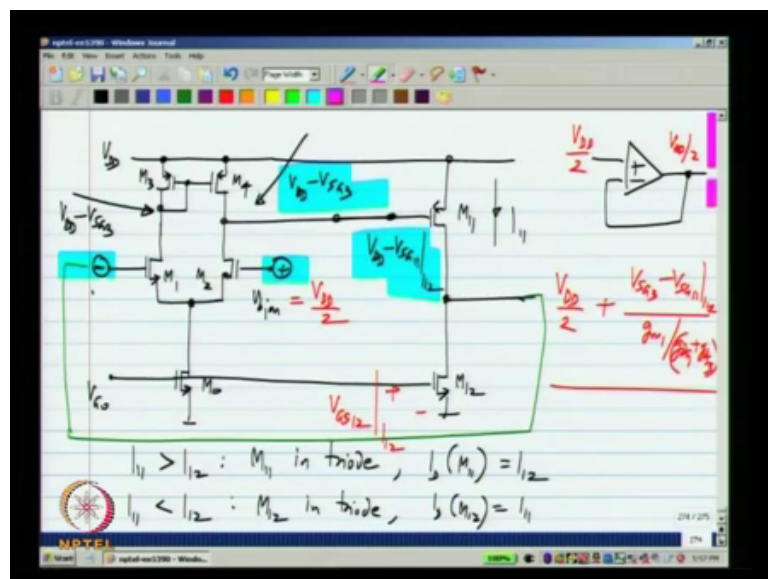 nptel-ee5390 - Windows Journal
File Edit View Insert Actions Tools Help
Page Width
V_DD
M3
M4
V_DD - V_SG3
V_DD - V_SG3
M11
I11
V_DD/2
V_DD/2
+
-
-
M1
M2
+
V_DD - V_SG11|I12
= V_DD/2
V_DD/2 + (V_SG3 - V_SG11|I12)
M0
V_G0
V_GS12|I12
+
-
M12
I11 > I12 : M11 in triode, I_D(M11) = I12
I11 < I12 : M12 in triode, I_D(M12) = I11
274 / 275
274
NPTEL
Start
nptel-ee5390 - Windo...
100%
5:57 PM